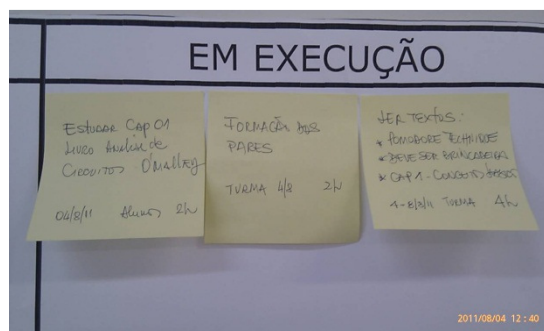 EM EXECUÇÃO
ESTUDAR CAP 01
LIVRO Análise de
CIRCUITOS O'Malley
04/8/11 Alunos 2h
FORMAÇÃO DOS
PARES
TURMA 4/8 2h
LER TEXTOS:
* POMODORE TECHNIQUE
* DEVE SER BRINCADEIRA
* CAP 1 - CONCEITOS BÁSICOS
4-8/8/11 TURMA 4h
2011/08/04 12:40